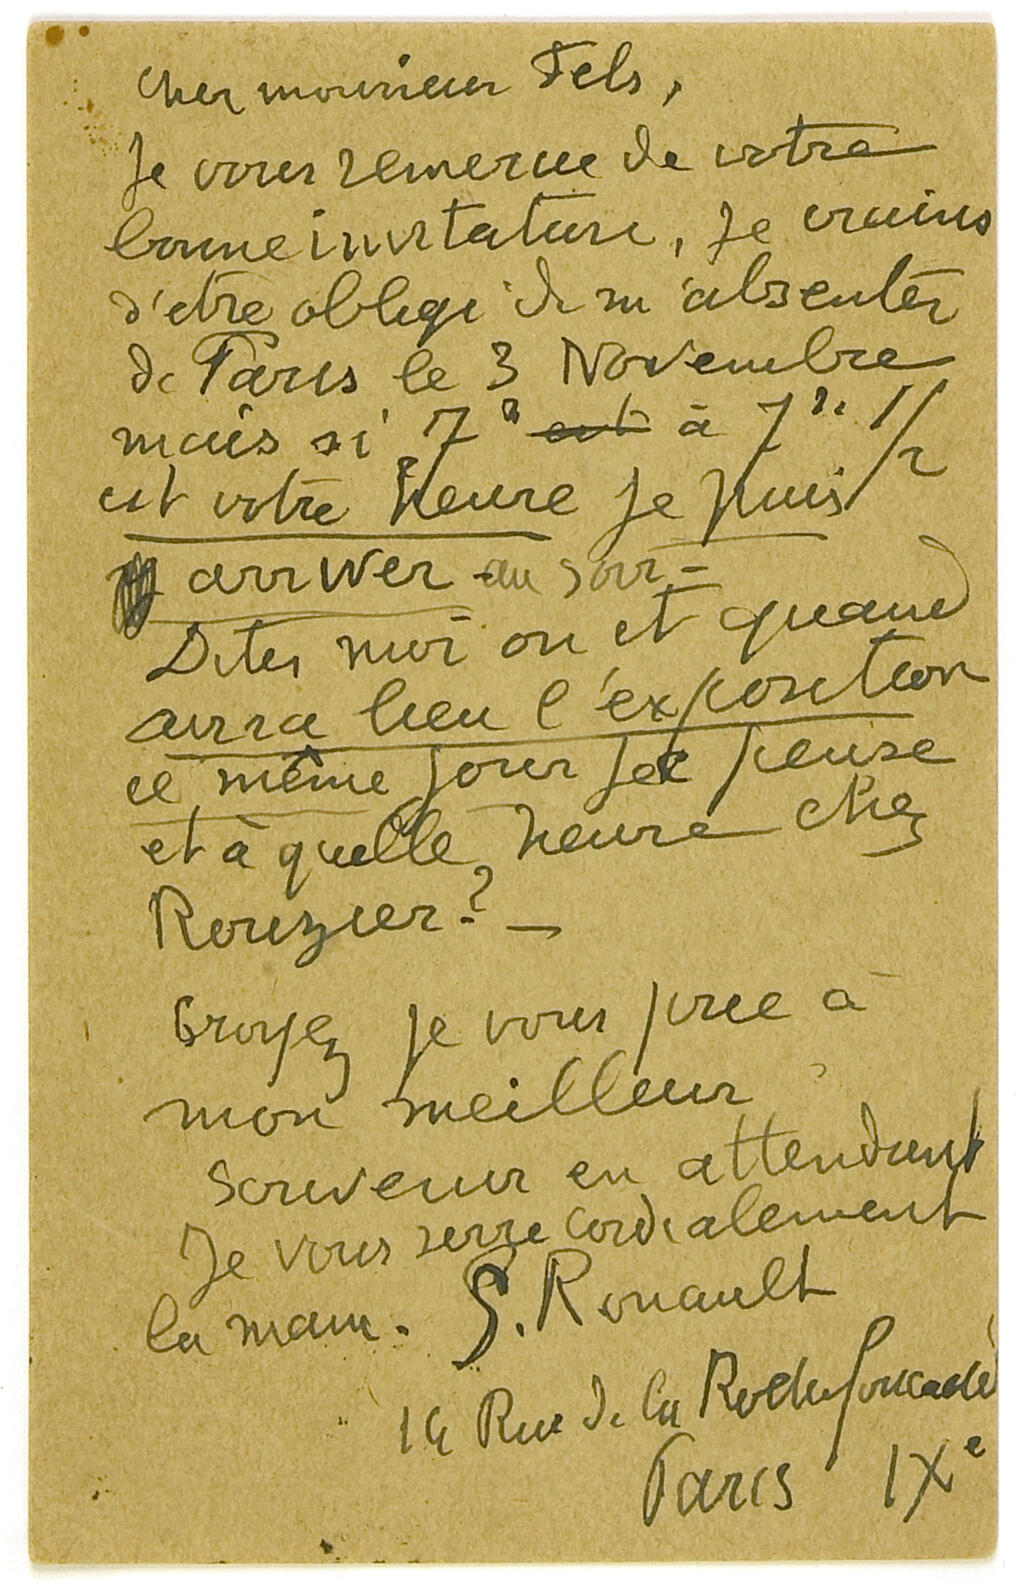 Cher monsieur Fels,
Je vous remercie de votre
bonne invitation, Je crains
d'etre obligé de m'absenter
de Paris le 3 Novembre
mais si 7h est à 7h 1/2
est votre heure je puis
y arriver au soir-
Dites moi ou et quand
aura lieu l'exposition
ce même jour je pense
et à quelle heure chez
Rouzier? _
Croyez je vous prie à
mon meilleur
souvenir en attendant
Je vous serre cordialement
la main. G. Rouault
14 Rue de la Rochefoucauld
Paris IXe